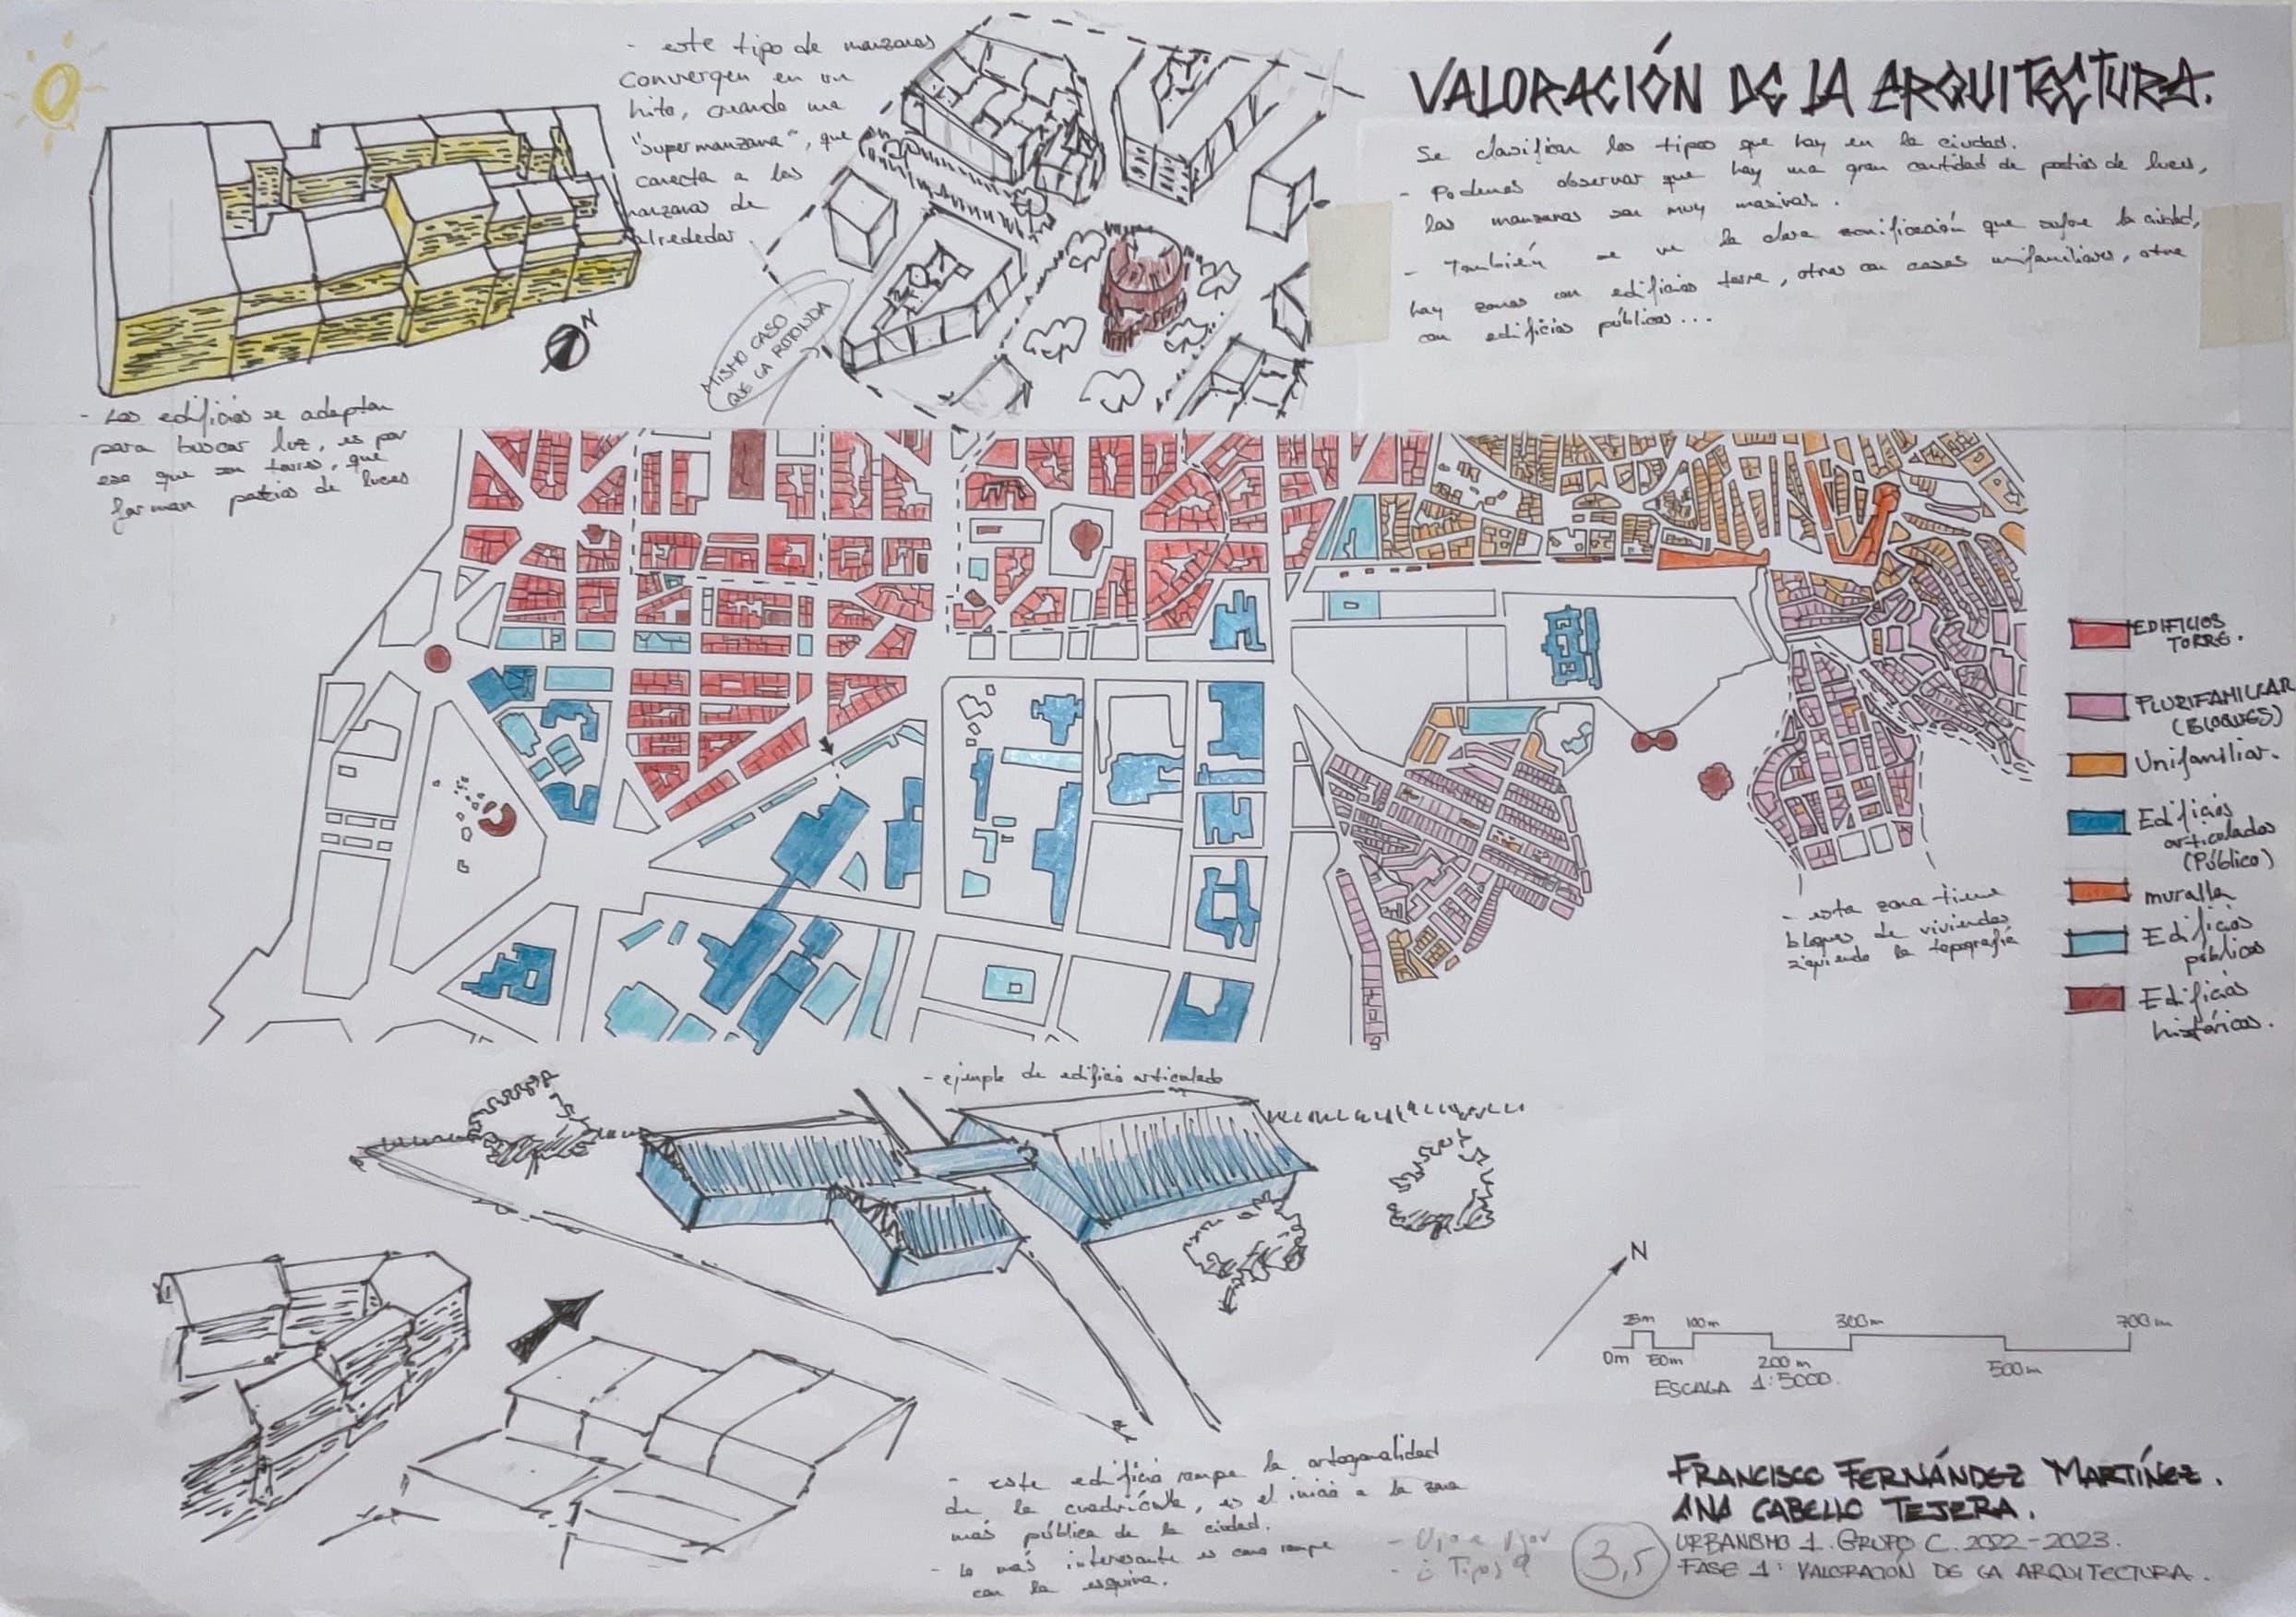 VALORACIÓN DE LA ARQUITECTURA.
Se clasifican los tipos que hay en la ciudad.
- Podemos observar que hay una gran cantidad de patios de luces,
las manzanas son muy masivas.
- También se ve la clara zonificación que sufre la ciudad,
hay zonas con edificios torre, otras con casas unifamiliares, otra
con edificios públicos...
- este tipo de manzanas
convergen en un
hito, creando una
"supermanzana", que
conecta a las
manzanas de
alrededor
N
MISMO CASO
QUE LA ROTONDA
- Los edificios se adaptan
para buscar luz, es por
eso que son torres, que
forman patios de luces
EDIFICIOS
TORRE.
PLURIFAMILIAR
(BLOQUES)
Unifamiliar.
Edificios
articulados
(Público)
muralla
Edificios
públicos
Edificios
históricos.
- esta zona tiene
bloques de viviendas
siguiendo la topografía
- ejemplo de edificio articulado
N
25m 100m 300m 700m
0m 50m 200m 500m
ESCALA 1:5000
- este edificio rompe la ortogonalidad
de la cuadrícula, es el inicio a la zona
más pública de la ciudad.
- Lo más interesante es como rompe
con la esquina.
- ¿Tipos?
3,5
FRANCISCO FERNÁNDEZ MARTÍNEZ.
ANA CABELLO TEJERA.
URBANISMO 1. GRUPO C. 2022-2023.
FASE 1: VALORACIÓN DE LA ARQUITECTURA.